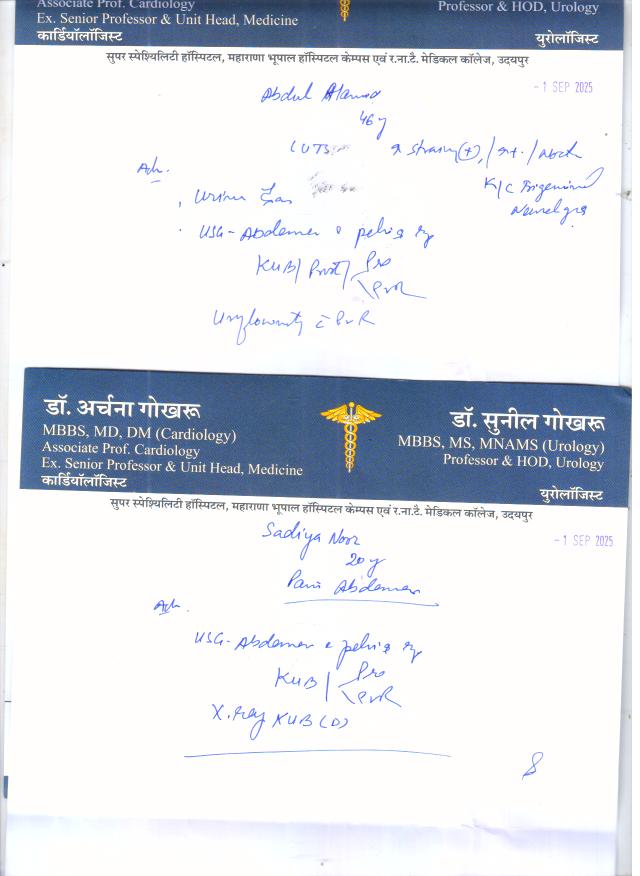 Associate Prof. Cardiology
Professor & HOD, Urology
Ex. Senior Professor & Unit Head, Medicine
कार्डियॉलॉजिस्ट
युरोलॉजिस्ट
सुपर स्पेश्यिलिटी हॉस्पिटल, महाराणा भूपाल हॉस्पिटल केम्पस एवं र.ना.टै. मेडिकल कॉलेज, उदयपुर
- 1 SEP 2025
Abdul
46 y
LUTS
K/C Trigeminal
Adv.
Urine
USG - Abdomen c pelvis
KUB/ Prost/ Pre
PVR
Uroflowmetry c PVR
डॉ. अर्चना गोखरू
डॉ. सुनील गोखरू
MBBS, MD, DM (Cardiology)
MBBS, MS, MNAMS (Urology)
Associate Prof. Cardiology
Professor & HOD, Urology
Ex. Senior Professor & Unit Head, Medicine
कार्डियॉलॉजिस्ट
युरोलॉजिस्ट
सुपर स्पेश्यिलिटी हॉस्पिटल, महाराणा भूपाल हॉस्पिटल केम्पस एवं र.ना.टै. मेडिकल कॉलेज, उदयपुर
- 1 SEP 2025
Sadiya Noor
20 y
Pain Abdomen
Adv.
USG - Abdomen c pelvis
KUB / Pre
PVR
X.ray KUB (D)